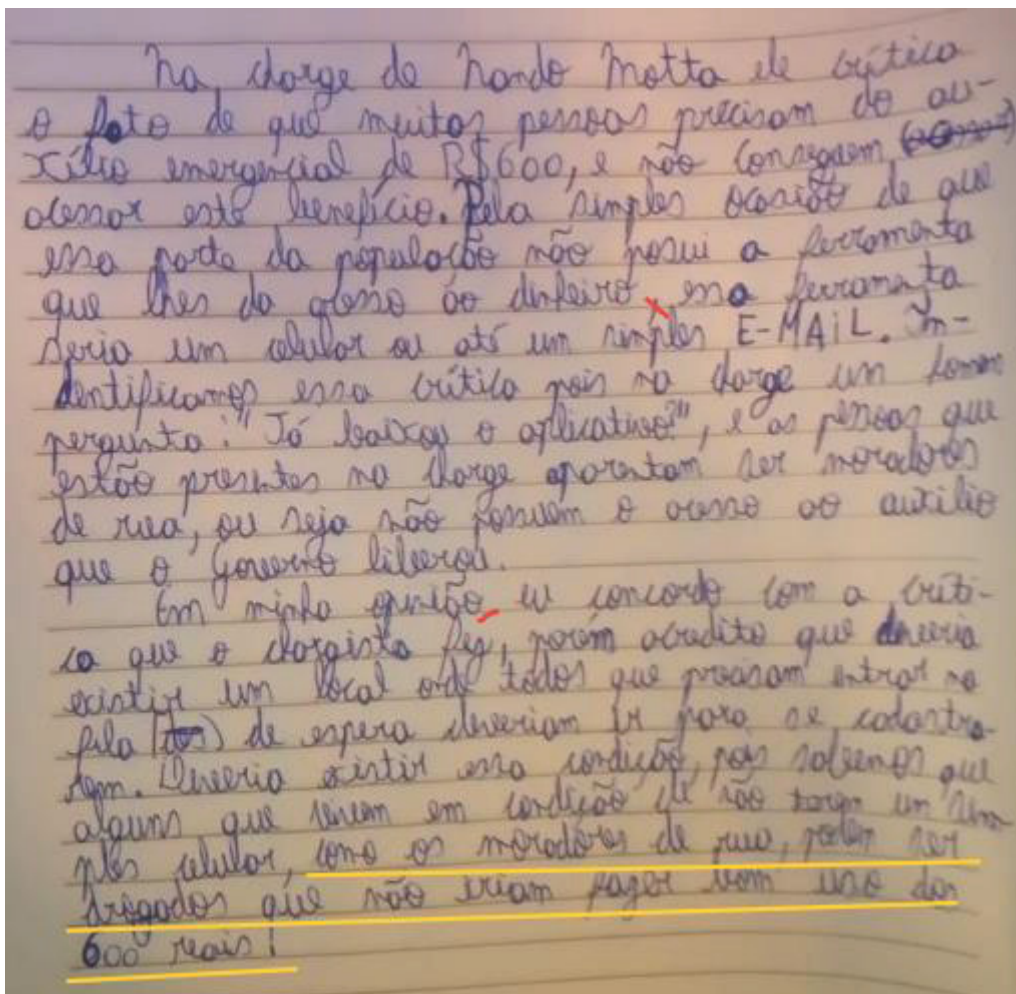 Na charge de Nando Motta ele crítica
o fato de que muitas pessoas precisam do au-
xílio emergencial de R$600, e não conseguem
acessar este benefício. Pela simples ocasião de que
essa parte da população não posui a ferramenta
que lhes da acesso ao dinheiro, essa ferramenta
seria um celular ou até um simples E-MAIL. In-
dentificamos essa crítica pois na charge um homem
pergunta: "Já baixou o aplicativo?", e as pessoas que
estão presentes na charge aparentam ser moradores
de rua, ou seja não possuem o acesso ao auxilio
que o governo liberou.
Em minha opinião eu concordo com a críti-
ca que o chargista fez, porém acredito que deveria
existir um local onde todos que precisam entrar na
fila de espera deveriam ir para se cadastra-
rem. Deveria existir essa condição, pois sabemos que
alguns que vivem em condição de não terem um sim-
ples celular, como os moradores de rua, podem ser
drogados que não iriam fazer bom uso dos
600 reais!